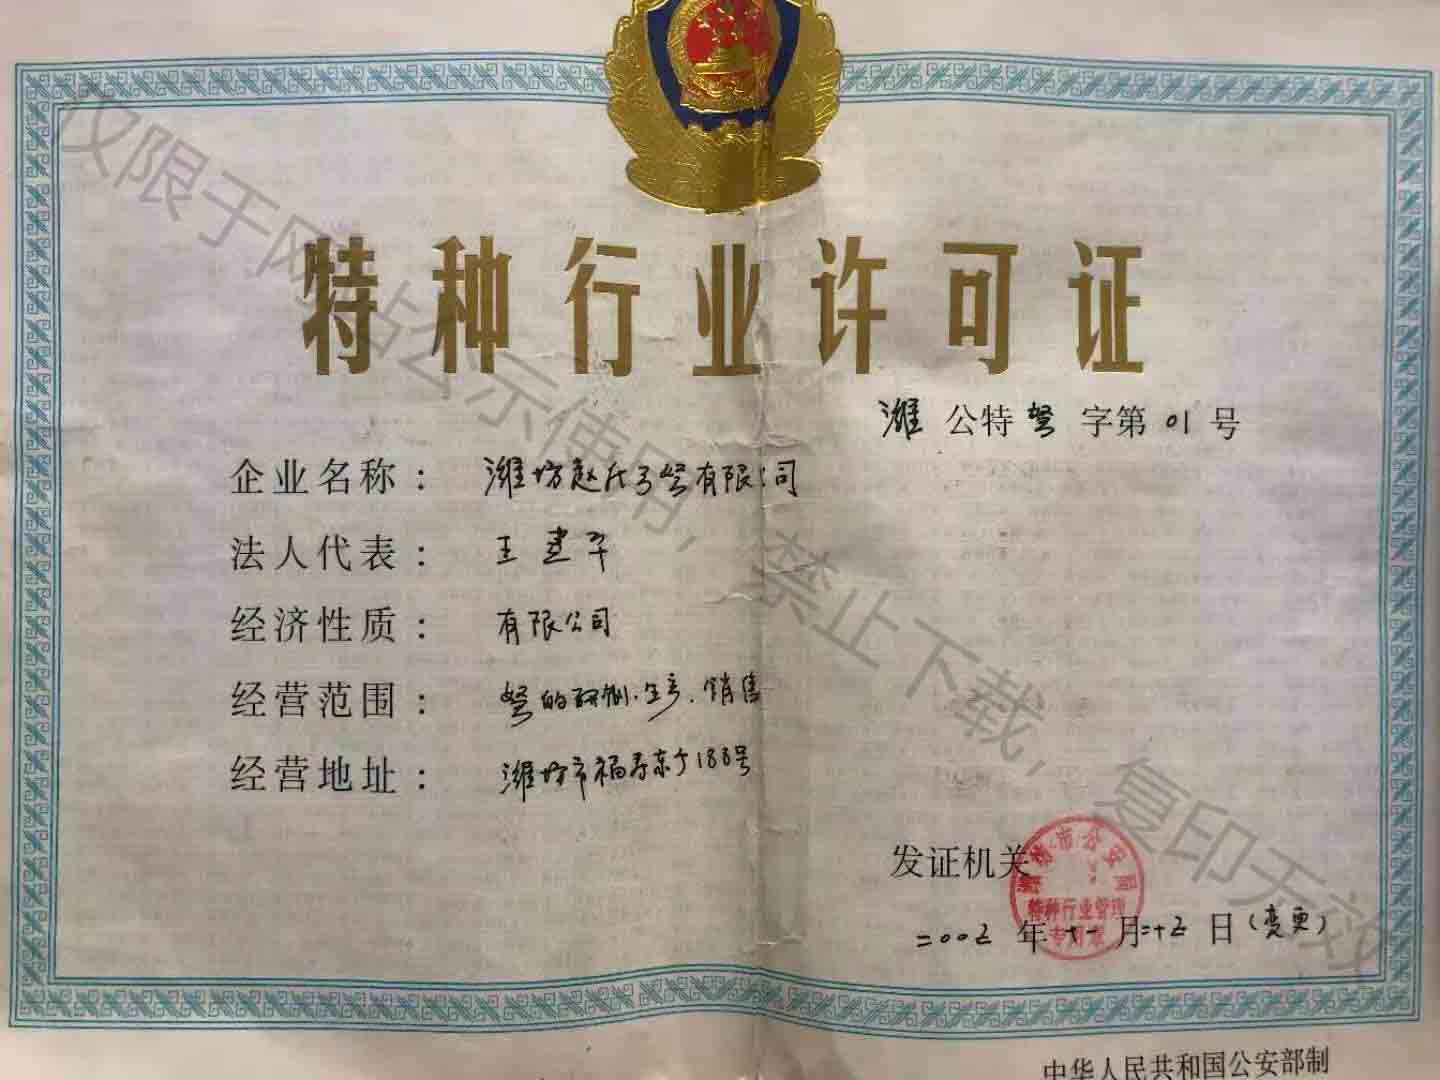 特种行业许可证
潍 公特 弩 字第 01 号
企业名称： 潍坊赵氏弓弩有限公司
法人代表： 王建平
经济性质： 有限公司
经营范围： 弩的研制、生产、销售
经营地址： 潍坊市福寿东街188号
发证机关
潍坊市公安局
特种行业管理
专用章
二〇〇五 年 十一 月 二十五 日（变更）
中华人民共和国公安部制
仅限于网站公示使用，禁止下载，复印无效